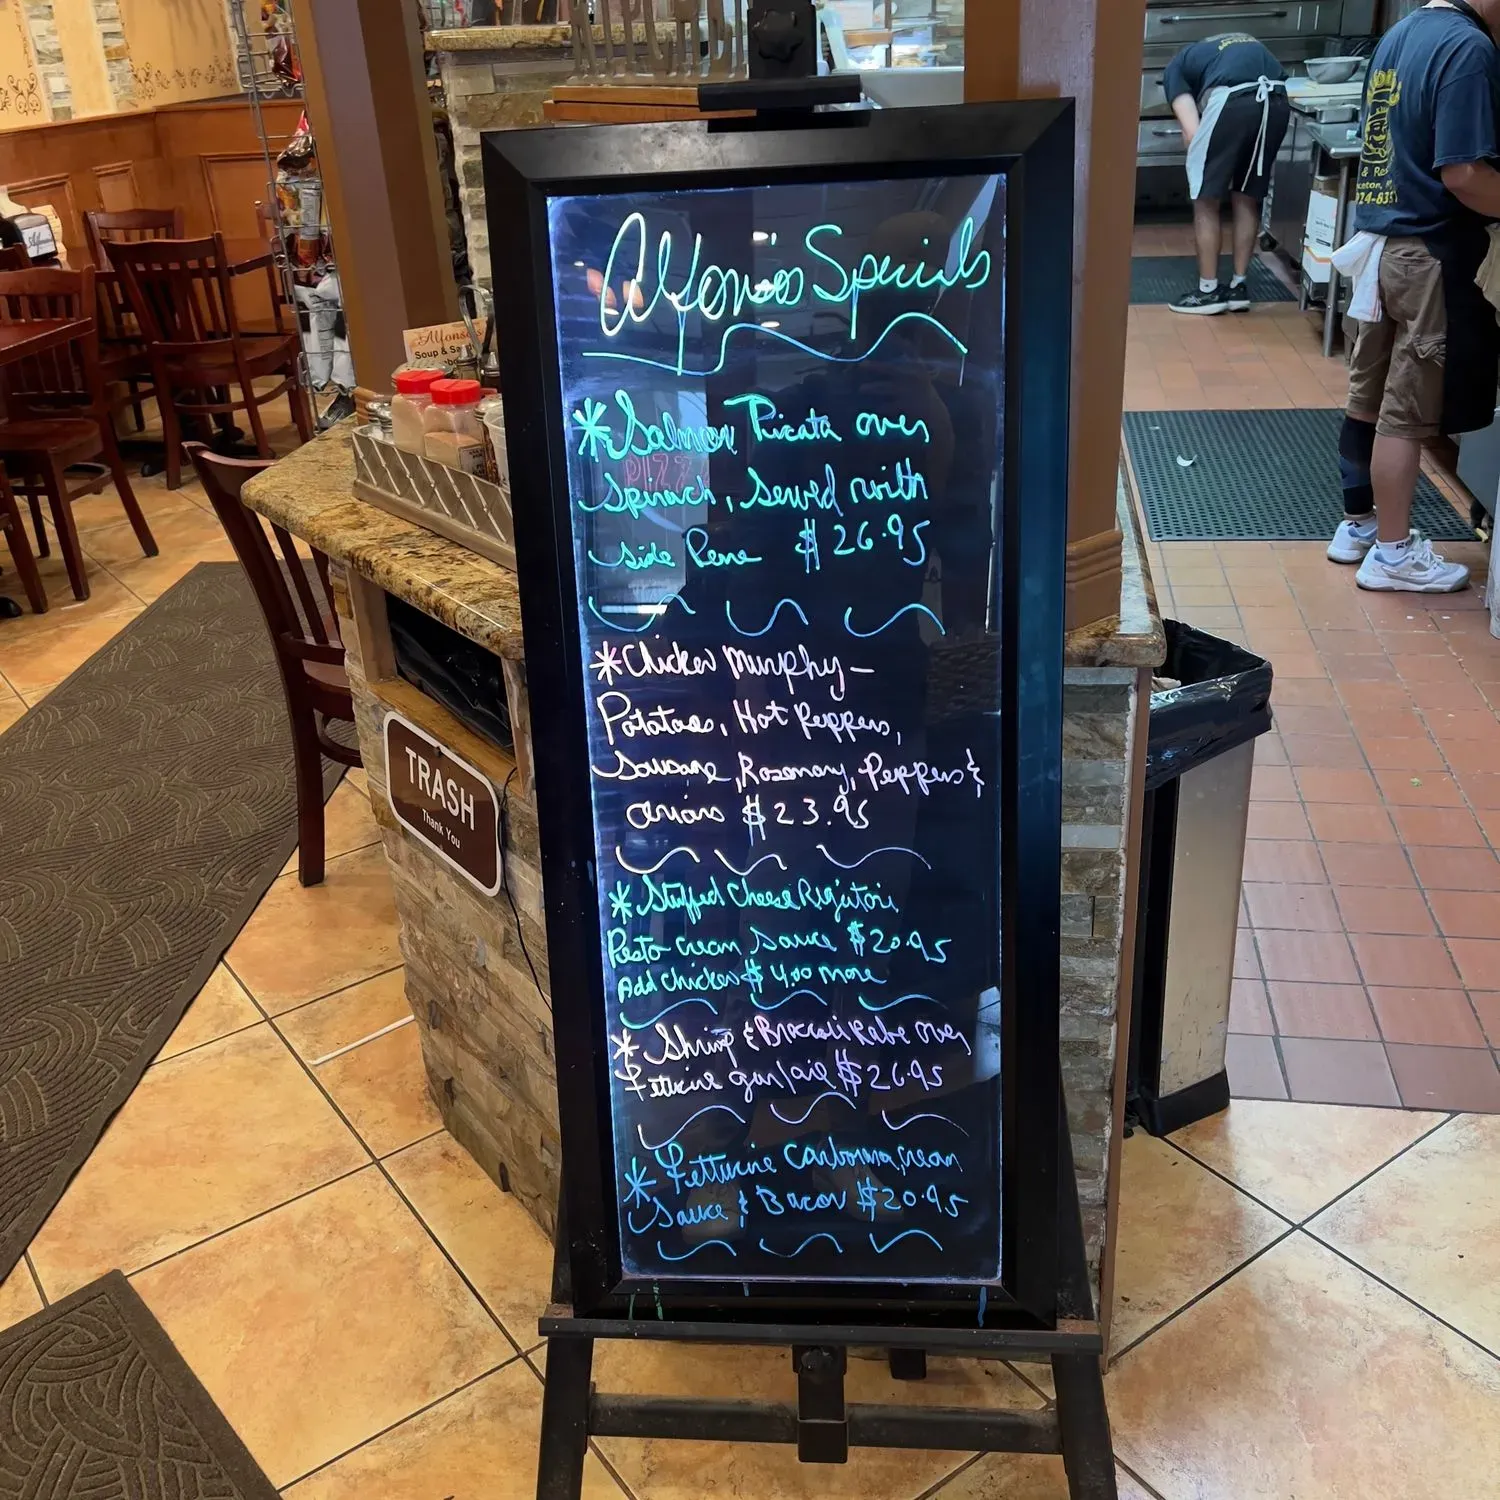 Alfonso's Specials
*Salmon Picata over
Spinach, Served with
side Pene $26.95
*Chicken Murphy-
Potatoes, Hot Peppers,
Sausage, Rosemary, Peppers &
onions $23.95
*Stuffed Cheese Rigatoni
Pesto cream sauce $20.95
Add chicken $4.00 more
* Shrimp & Broccoli Rabe over
Fettucine gar/oil $26.95
* Fettucine Carbonara, cream
Sauce & Bacon $20.95
PIZZ
Alfonso
Soup & Sa
TRASH
Thank You
& Res
ceton,
924-835